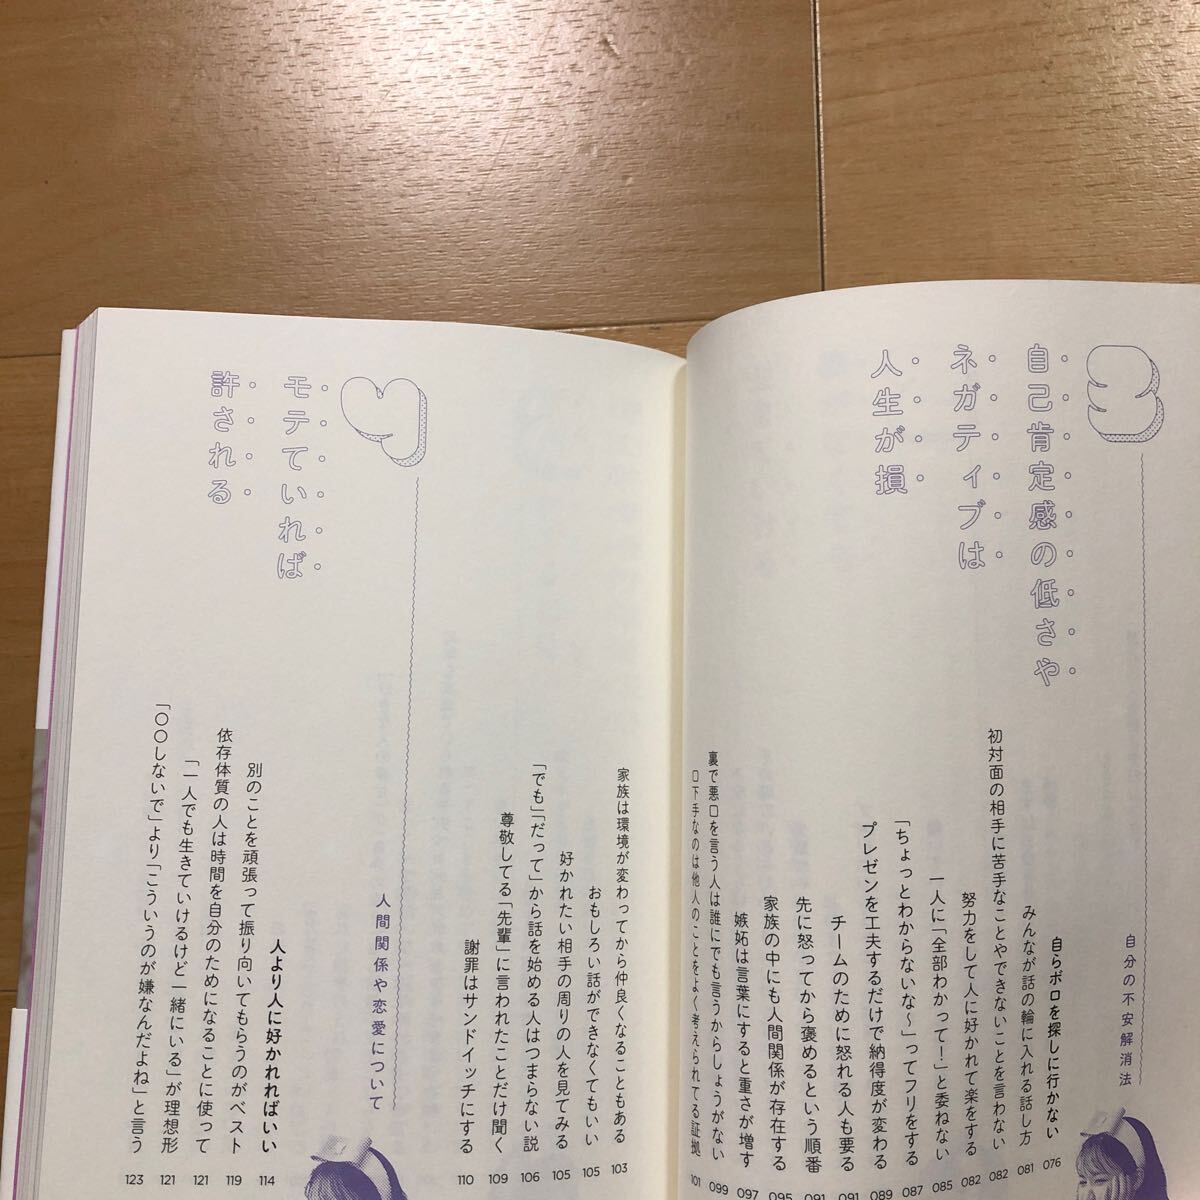 3
自己肯定感の低さや
ネガティブは
人生が損
自分の不安解消法
自らボロを探しに行かない 076
みんなが話の輪に入れる話し方 081
初対面の相手に苦手なことやできないことを言わない 082
努力をして人に好かれて楽をする 082
一人に「全部わかって！」と委ねない 085
「ちょっとわからないな〜」ってフリをする 087
プレゼンを工夫するだけで納得度が変わる 089
チームのために怒れる人も要る 091
先に怒ってから褒めるという順番 091
家族の中にも人間関係が存在する 095
嫉妬は言葉にすると重さが増す 097
裏で悪口を言う人は誰にでも言うからしょうがない 099
口下手なのは他人のことをよく考えられてる証拠 101
家族は環境が変わってから仲良くなることもある 103
おもしろい話ができなくてもいい 105
好かれたい相手の周りの人を見てみる 105
「でも」「だって」から話を始める人はつまらない説 106
尊敬してる「先輩」に言われたことだけ聞く 109
謝罪はサンドイッチにする 110
4
モテていれば
許される
人間関係や恋愛について
人より人に好かれればいい 114
別のことを頑張って振り向いてもらうのがベスト 119
依存体質の人は時間を自分のためになることに使って 121
「一人でも生きていけるけど一緒にいる」が理想形 121
「〇〇しないで」より「こういうのが嫌なんだよね」と言う 123